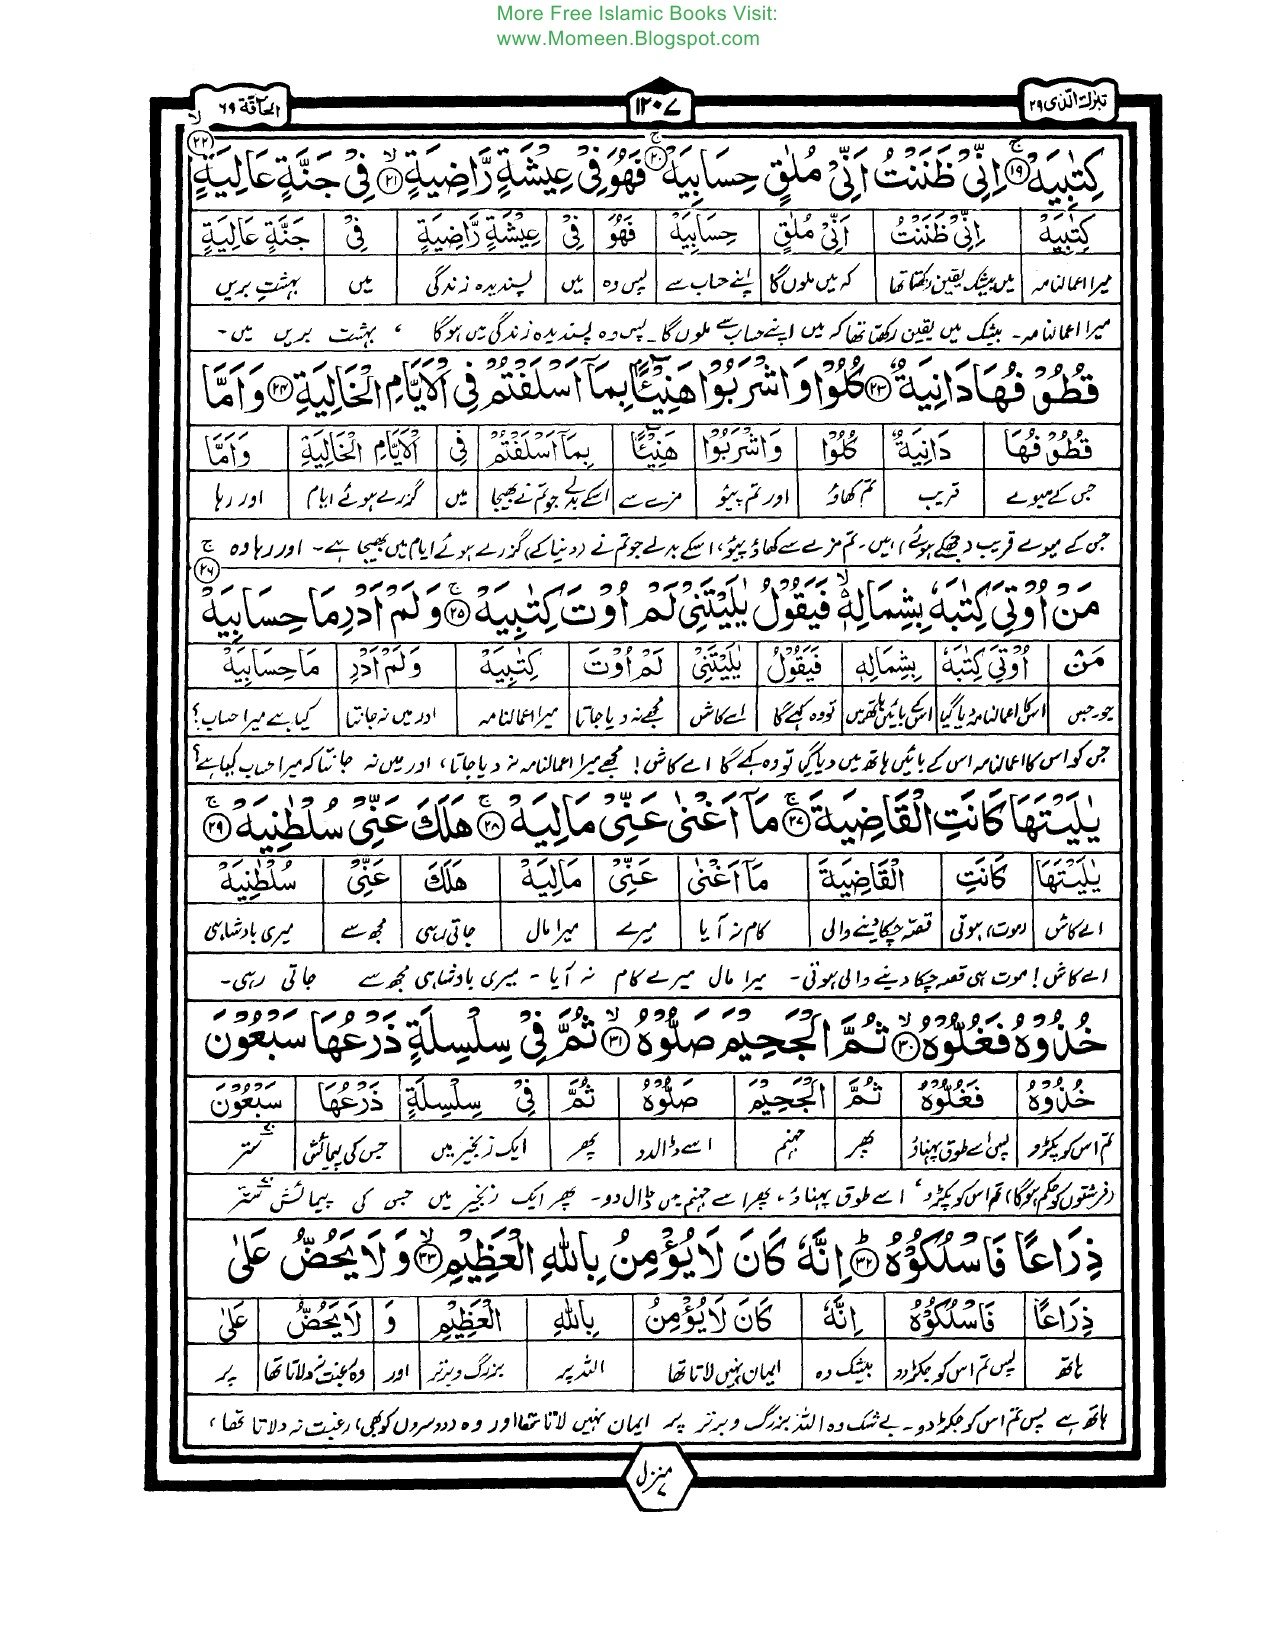 More Free Islamic Books Visit:
www.Momeen.Blogspot.com
تبٰرك الذی ٢٩
١٢٠٧
الحآقة ٦٩
كِتٰبِيَهْ ۝١٩ۚ اِنِّیْ ظَنَنْتُ اَنِّیْ مُلٰقٍ حِسَابِيَهْ ۝٢٠ۚ فَهُوَ فِیْ عِيْشَةٍ رَّاضِيَةٍ ۝٢١ۙ فِیْ جَنَّةٍ عَالِيَةٍ ۝٢٢ۙ
كِتٰبِيَهْ اِنِّیْ ظَنَنْتُ اَنِّیْ مُلٰقٍ حِسَابِيَهْ فَهُوَ فِیْ عِيْشَةٍ رَّاضِيَةٍ فِیْ جَنَّةٍ عَالِيَةٍ
میرا اعمالنامہ میں بیشک یقین رکھتا تھا کہ میں ملوں گا اپنے حساب سے پس وہ میں پسندیدہ زندگی میں بہشتِ بریں
میرا اعمالنامہ۔ بیشک میں یقین رکھتا تھا کہ میں اپنے حساب سے ملوں گا۔ پس وہ پسندیدہ زندگی میں ہوگا ، بہشت بریں میں۔
قُطُوْفُهَا دَانِيَةٌ ۝٢٣ كُلُوْا وَاشْرَبُوْا هَنِيْٓئًۢا بِمَآ اَسْلَفْتُمْ فِی الْاَيَّامِ الْخَالِيَةِ ۝٢٤ وَاَمَّا
قُطُوْفُهَا دَانِيَةٌ كُلُوْا وَاشْرَبُوْا هَنِيْٓئًۢا بِمَآ اَسْلَفْتُمْ فِی الْاَيَّامِ الْخَالِيَةِ وَاَمَّا
جس کے میوے قریب تم کھاؤ اور تم پیئو مزے سے اسکے بدلے جو تم نے بھیجا میں گزرے ہوئے ایام اور رہا
جس کے میوے قریب (جھکے ہوئے) ہیں۔ تم مزے سے کھاؤ پیئو، اسکے بدلے جو تم نے (دنیا کے) گزرے ہوئے ایام میں بھیجا ہے۔ اور رہا وہ
مَنْ اُوْتِیَ كِتٰبَهٗ بِشِمَالِهٖ ۙ فَيَقُوْلُ يٰلَيْتَنِیْ لَمْ اُوْتَ كِتٰبِيَهْ ۝٢٥ۚ وَلَمْ اَدْرِ مَا حِسَابِيَهْ ۝٢٦ۚ
مَنْ اُوْتِیَ كِتٰبَهٗ بِشِمَالِهٖ فَيَقُوْلُ يٰلَيْتَنِیْ لَمْ اُوْتَ كِتٰبِيَهْ وَلَمْ اَدْرِ مَا حِسَابِيَهْ
جو۔جس اسکا اعمالنامہ دیا گیا اسکے بائیں ہاتھ میں تو وہ کہے گا اے کاش مجھے نہ دیا جاتا میرا اعمالنامہ اور میں نہ جانتا کیا ہے میرا حساب؟
جس کو اس کا اعمالنامہ اس کے بائیں ہاتھ میں دیا گیا تو وہ کہے گا اے کاش! مجھے میرا اعمالنامہ نہ دیا جاتا، اور میں نہ جانتا کہ میرا حساب کیا ہے؟
يٰلَيْتَهَا كَانَتِ الْقَاضِيَةَ ۝٢٧ۚ مَآ اَغْنٰى عَنِّیْ مَالِيَهْ ۝٢٨ۚ هَلَكَ عَنِّیْ سُلْطٰنِيَهْ ۝٢٩ۚ
يٰلَيْتَهَا كَانَتِ الْقَاضِيَةَ مَآ اَغْنٰى عَنِّیْ مَالِيَهْ هَلَكَ عَنِّیْ سُلْطٰنِيَهْ
اے کاش (موت) ہوتی قصہ چکا دینے والی کام نہ آیا میرے میرا مال جاتی رہی مجھ سے میری بادشاہی
اے کاش! موت ہی قصہ چکا دینے والی ہوتی۔ میرا مال میرے کام نہ آیا۔ میری بادشاہی مجھ سے جاتی رہی۔
خُذُوْهُ فَغُلُّوْهُ ۝٣٠ۙ ثُمَّ الْجَحِيْمَ صَلُّوْهُ ۝٣١ۙ ثُمَّ فِیْ سِلْسِلَةٍ ذَرْعُهَا سَبْعُوْنَ
خُذُوْهُ فَغُلُّوْهُ ثُمَّ الْجَحِيْمَ صَلُّوْهُ ثُمَّ فِیْ سِلْسِلَةٍ ذَرْعُهَا سَبْعُوْنَ
تم اس کو پکڑو پس اسے طوق پہناؤ پھر جہنم اسے ڈالدو پھر ایک زنجیر میں جس کی پیمائش ستر
(فرشتوں کو حکم ہوگا) تم اس کو پکڑو، اسے طوق پہناؤ، پھر اسے جہنم میں ڈال دو۔ پھر ایک زنجیر میں جس کی پیمائش ستر
ذِرَاعًا فَاسْلُكُوْهُ ۝٣٢ؕ اِنَّهٗ كَانَ لَا يُؤْمِنُ بِاللّٰهِ الْعَظِيْمِ ۝٣٣ۙ وَلَا يَحُضُّ عَلٰى
ذِرَاعًا فَاسْلُكُوْهُ اِنَّهٗ كَانَ لَا يُؤْمِنُ بِاللّٰهِ الْعَظِيْمِ وَ لَا يَحُضُّ عَلٰى
ہاتھ پس تم اس کو جکڑ دو بیشک وہ ایمان نہیں لاتا تھا اللہ پر بزرگ و برتر اور وہ رغبت نہ دلاتا تھا پر
ہاتھ ہے پس تم اس کو جکڑ دو۔ بے شک وہ اللہ بزرگ و برتر پر ایمان نہیں لاتا تھا اور وہ (دوسروں کو بھی) رغبت نہ دلاتا تھا،
منزل ٧